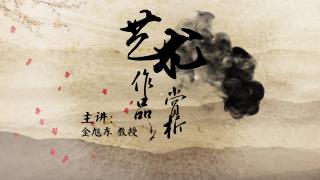 艺术
作品
赏析
主讲：
金旭东 教授